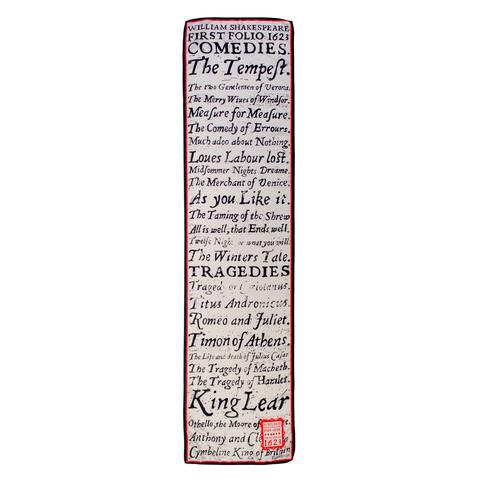 WILLIAM SHAKESPEARE
FIRST FOLIO 1623
COMEDIES.
The Tempest.
The two Gentlemen of Verona.
The Merry Wiues of Windsor.
Measure for Measure.
The Comedy of Errours.
Much adoo about Nothing.
Loues Labour lost.
Midsommer Nights Dreame.
The Merchant of Venice.
As you Like it.
The Taming of the Shrew
All is well, that Ends well.
Twelfe Night or what you will.
The Winters Tale.
TRAGEDIES
Tragedy of Coriolanus.
Titus Andronicus.
Romeo and Juliet.
Timon of Athens.
The Life and death of Julius Cæsar
The Tragedy of Macbeth.
The Tragedy of Hamlet.
King Lear
Othello, the Moore of
Anthony and
Cymbeline King of Britain